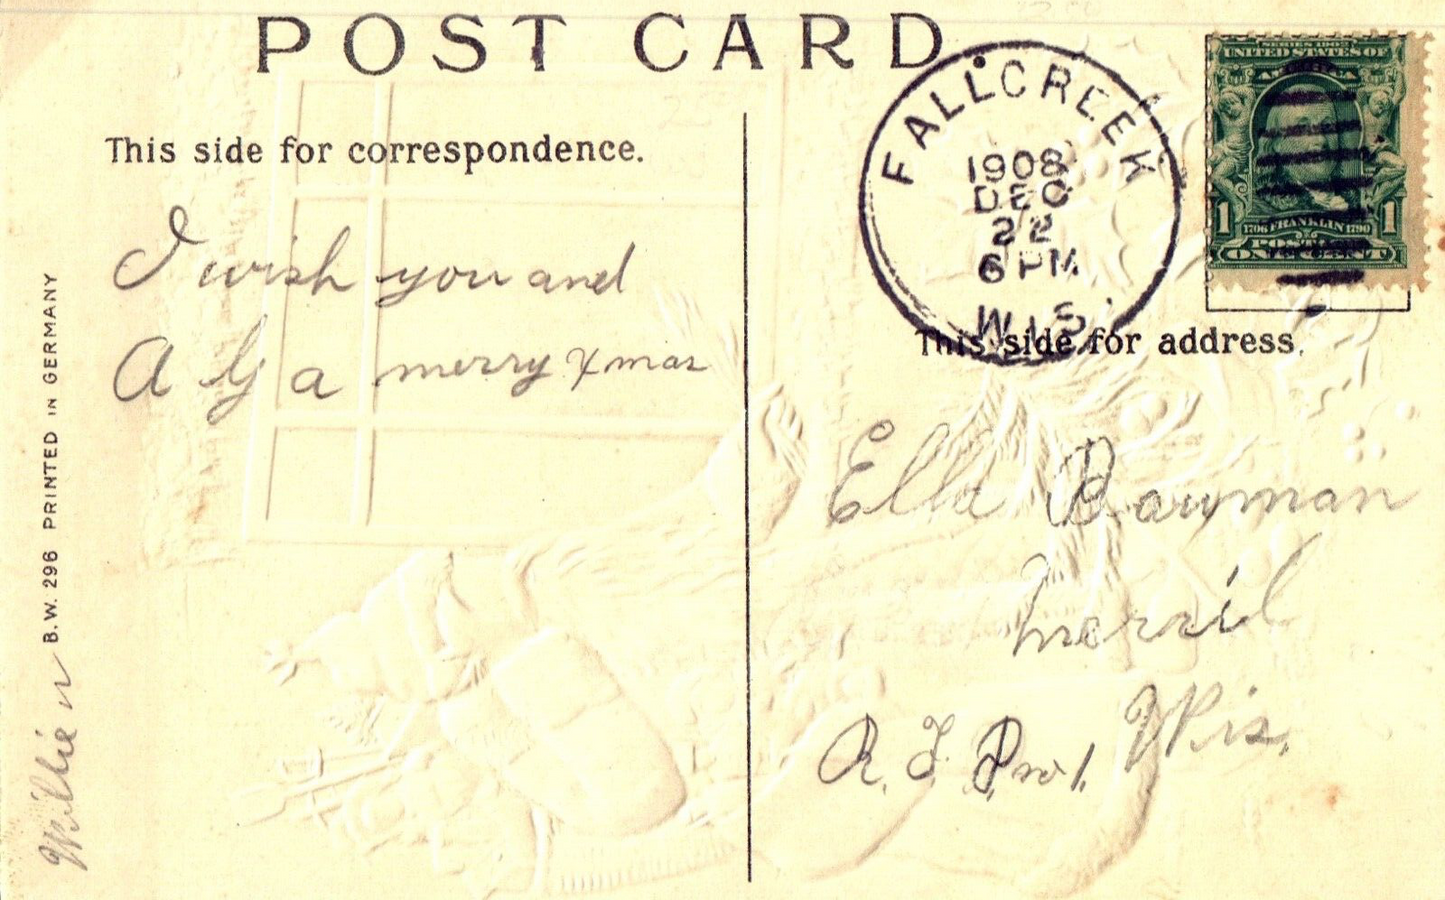 POST CARD
This side for correspondence.
I wish you and
A G a merry Xmas
Willie
B.W. 296 PRINTED IN GERMANY
FALL CREEK
1908
DEC
22
6 PM
WIS.
SERIES 1902
UNITED STATES OF
AMERICA
1 1706 FRANKLIN 1790 1
POSTAGE
ONE CENT
This side for address.
Ella Bauman
Merril
Wis.
R. F. D. no 1.